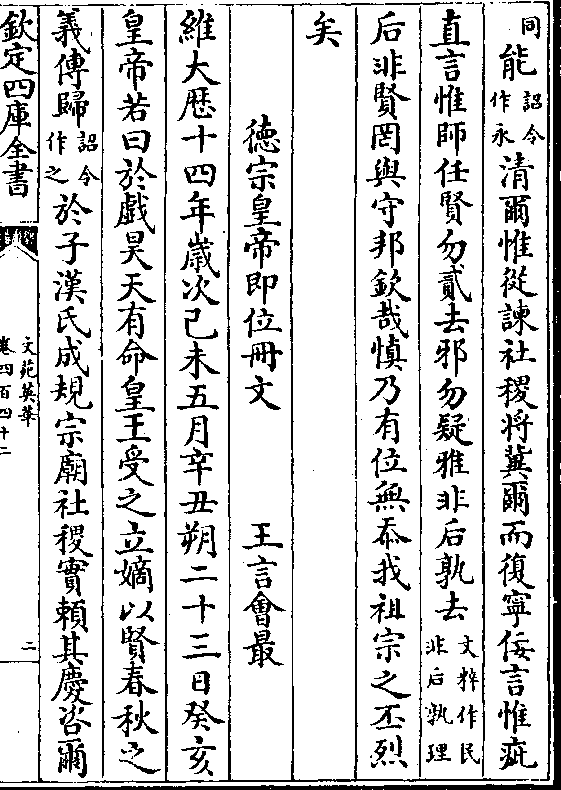 同能詔令作永清爾惟從諫社稷將冀爾而復寧佞言惟疵
直言惟師任賢勿貳去邪勿疑雅非后孰去文粹作民非后孰理
后非賢罔與守邦欽哉慎乃有位無忝我祖宗之丕烈
矣
德宗皇帝即位冊文 王言會最
維大歷十四年歲次己未五月辛丑朔二十三日癸亥
皇帝若曰於戲昊天有命皇王受之立嫡以賢春秋之
義傳歸詔令作之於子漢氏成規宗廟社稷實賴其慶咨爾
欽定四庫全書
文苑英華
卷四百四十二
二